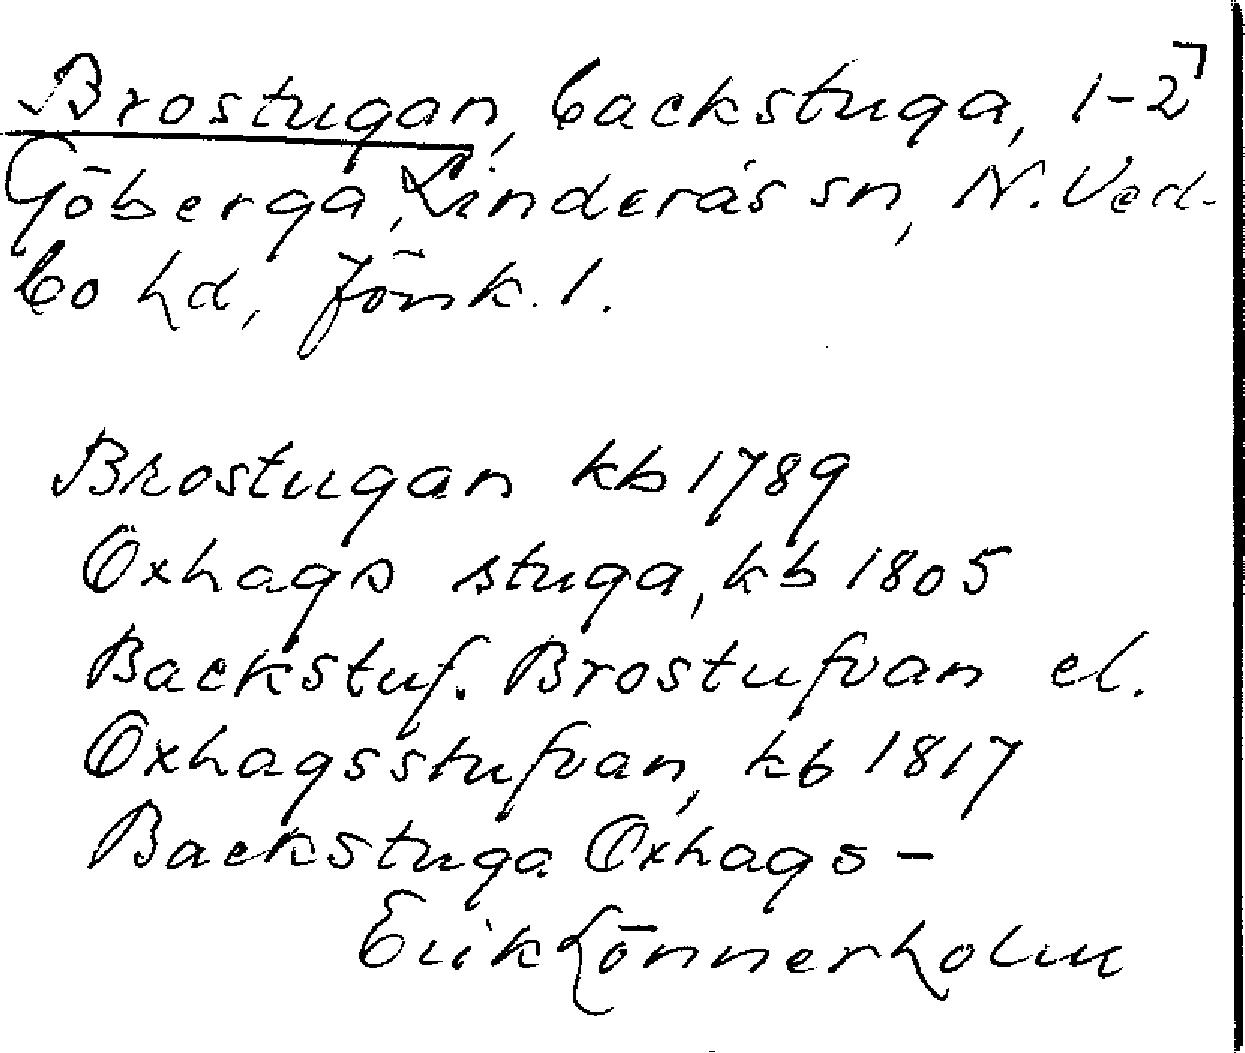 Brostugan, backstuga, 1-2⁊
Göberga, Linderås sn, N. Ved-
bo hd, Jönk. l.
Brostugan kb 1789
Oxhags stuga, kb 1805
Backstuf. Brostufvan el.
Oxhagsstufvan, kb 1817
Backstuga Oxhags-
Erik Lönnerholm